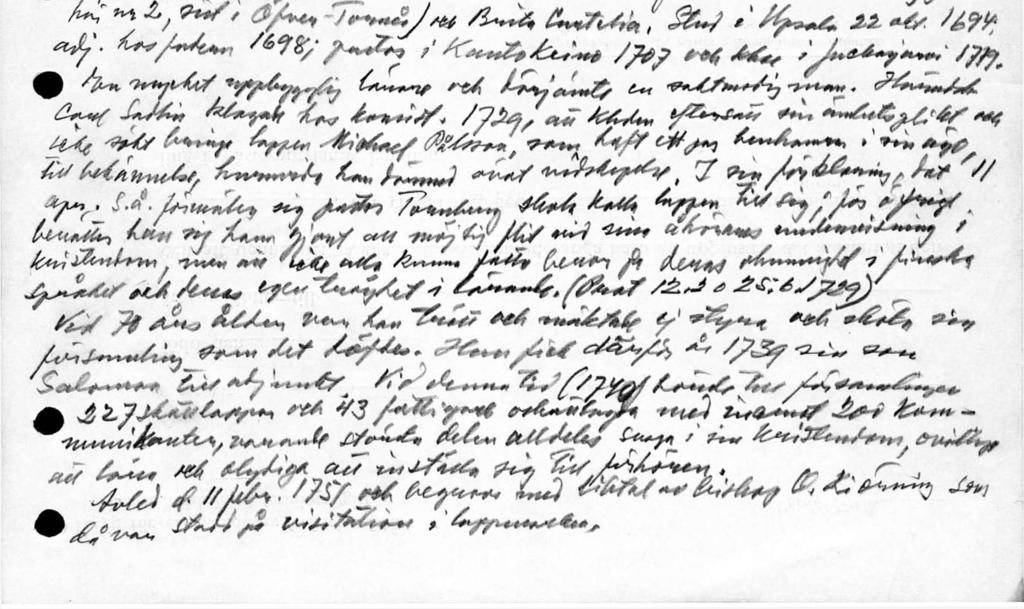 här nr 2, sist i Öfver-Torneå) och Brita Curtelia. Stud i Upsala 22 okt. 1694.
adj. hos fadern 1698; pastor i Kautokeino 1707 och khde i Juckasjärvi 1719.
En mycket uppbygglig lärare och därjämte en saktmodig man. Häradsh
Carl Sadlin klagade hos konsist. 1729, att khden eftersatt sin ämbetsplikt och
icke sökt bringa lappen Michael Pålsson, som haft ett par i sin ägo,
till bekännelse, huruvida han därmed övat vidskepelse. I sin förklaring, dat 11
apr. s.å. förmäler sig pastor Tornberg skola kalla lappen till sig; för öfrigt
berättar han sig hava gjort all möjlig flit vid sina åhörares undervisning i
kristendom, men att icke alla kunna fatta beror på deras okunnighet i finska
språket och deras egen tröghet i lärande. (Prot 12.3 o 25.6.1729)
Vid 70 års ålder var han trött och mäktade ej styra och sköta sin
församling som det höfdes. Han fick därför år 1739 sin son
Salomon till adjunkt. Vid denna tid (1740) hörde till församlingen
227 skattlappar och 43 fattigare med inemot 200 kom-
munikanter, varande största delen alldeles svaga i sin kristendom, ovilliga
att lära och olydiga att inställa sig till förhören.
Avled d. 11 febr. 1751 och begrovs med liktal av biskop O. Kiörning som
då var stadd på visitation i lappmarken.